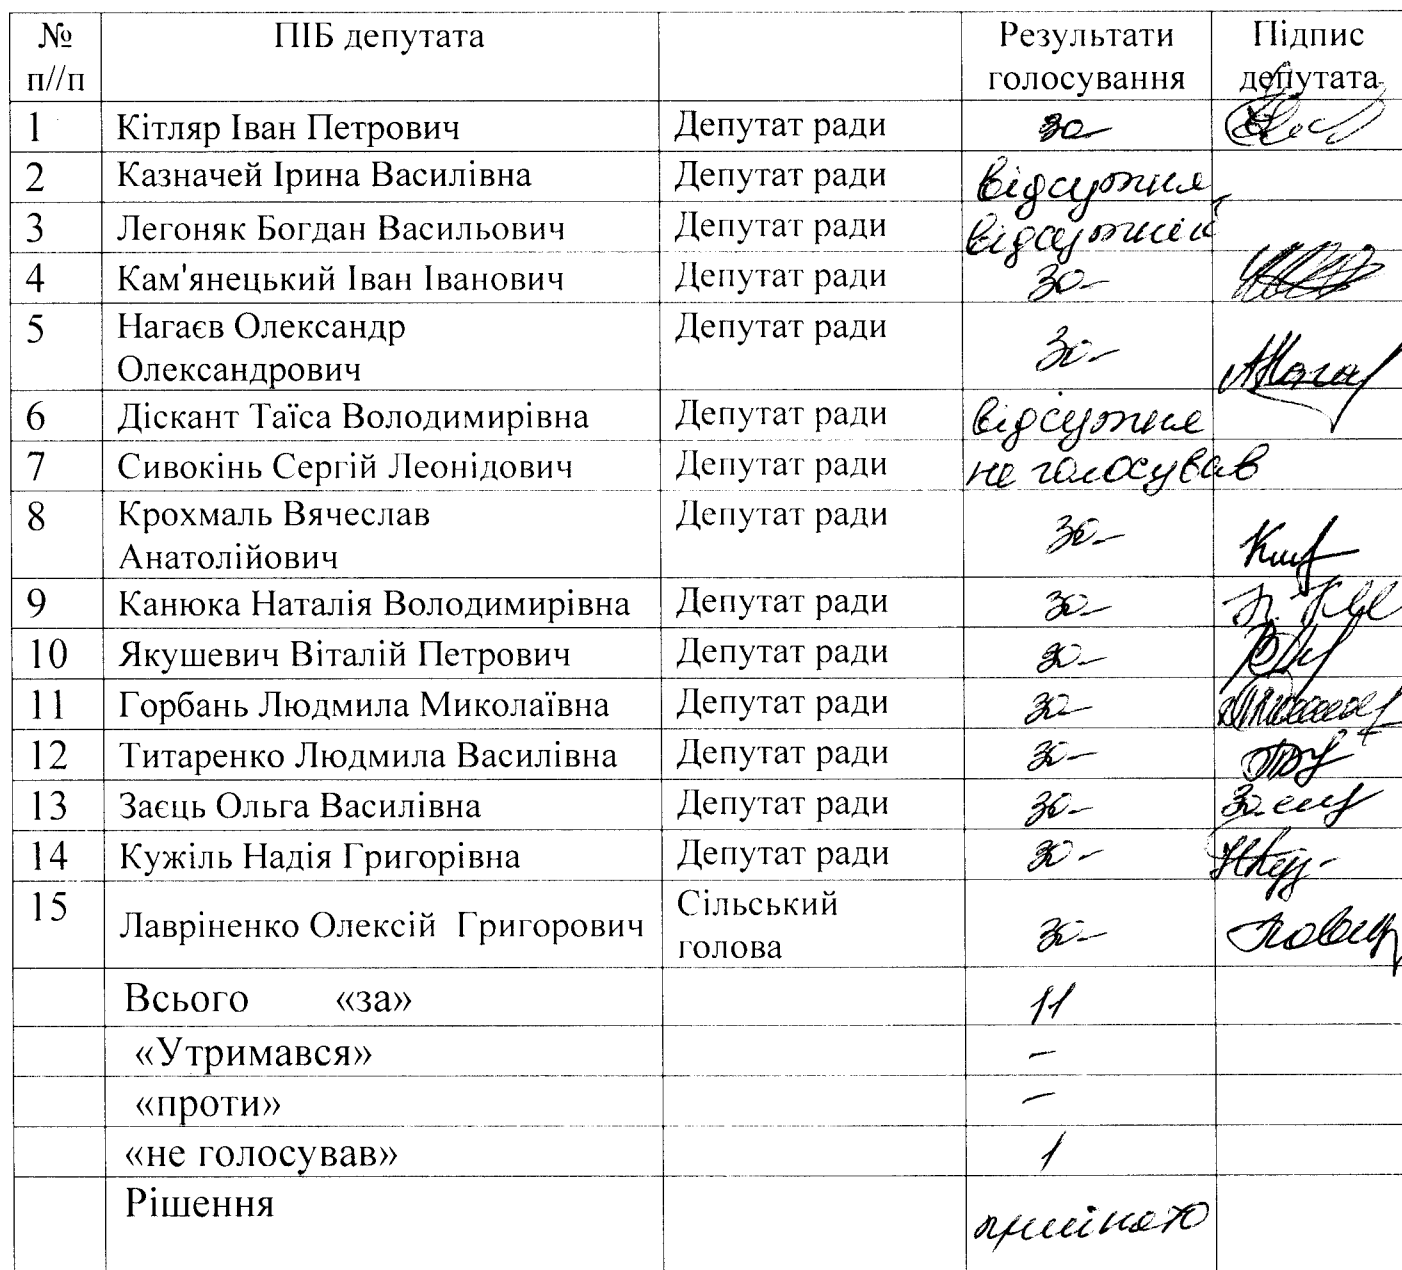 № п//п ПІБ депутата Результати голосування Підпис депутата
1 Кітляр Іван Петрович Депутат ради за
2 Казначей Ірина Василівна Депутат ради відсутня
3 Легоняк Богдан Васильович Депутат ради відсутній
4 Кам'янецький Іван Іванович Депутат ради за
5 Нагаєв Олександр Олександрович Депутат ради за
6 Діскант Таїса Володимирівна Депутат ради відсутня
7 Сивокінь Сергій Леонідович Депутат ради не голосував
8 Крохмаль Вячеслав Анатолійович Депутат ради за
9 Канюка Наталія Володимирівна Депутат ради за
10 Якушевич Віталій Петрович Депутат ради за
11 Горбань Людмила Миколаївна Депутат ради за
12 Титаренко Людмила Василівна Депутат ради за
13 Заєць Ольга Василівна Депутат ради за
14 Кужіль Надія Григорівна Депутат ради за
15 Лавріненко Олексій Григорович Сільський голова за
Всього «за» 11
«Утримався» –
«проти» –
«не голосував» 1
Рішення прийнято